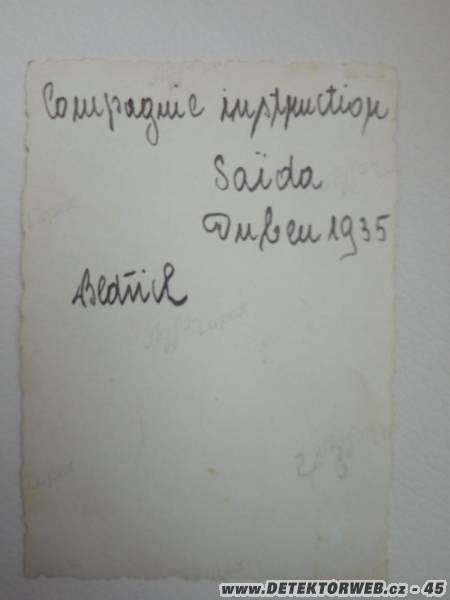 Compagnie instruction
Saïda
Duben 1935
Bedřich
23
www.DETEKTORWEB.cz - 45